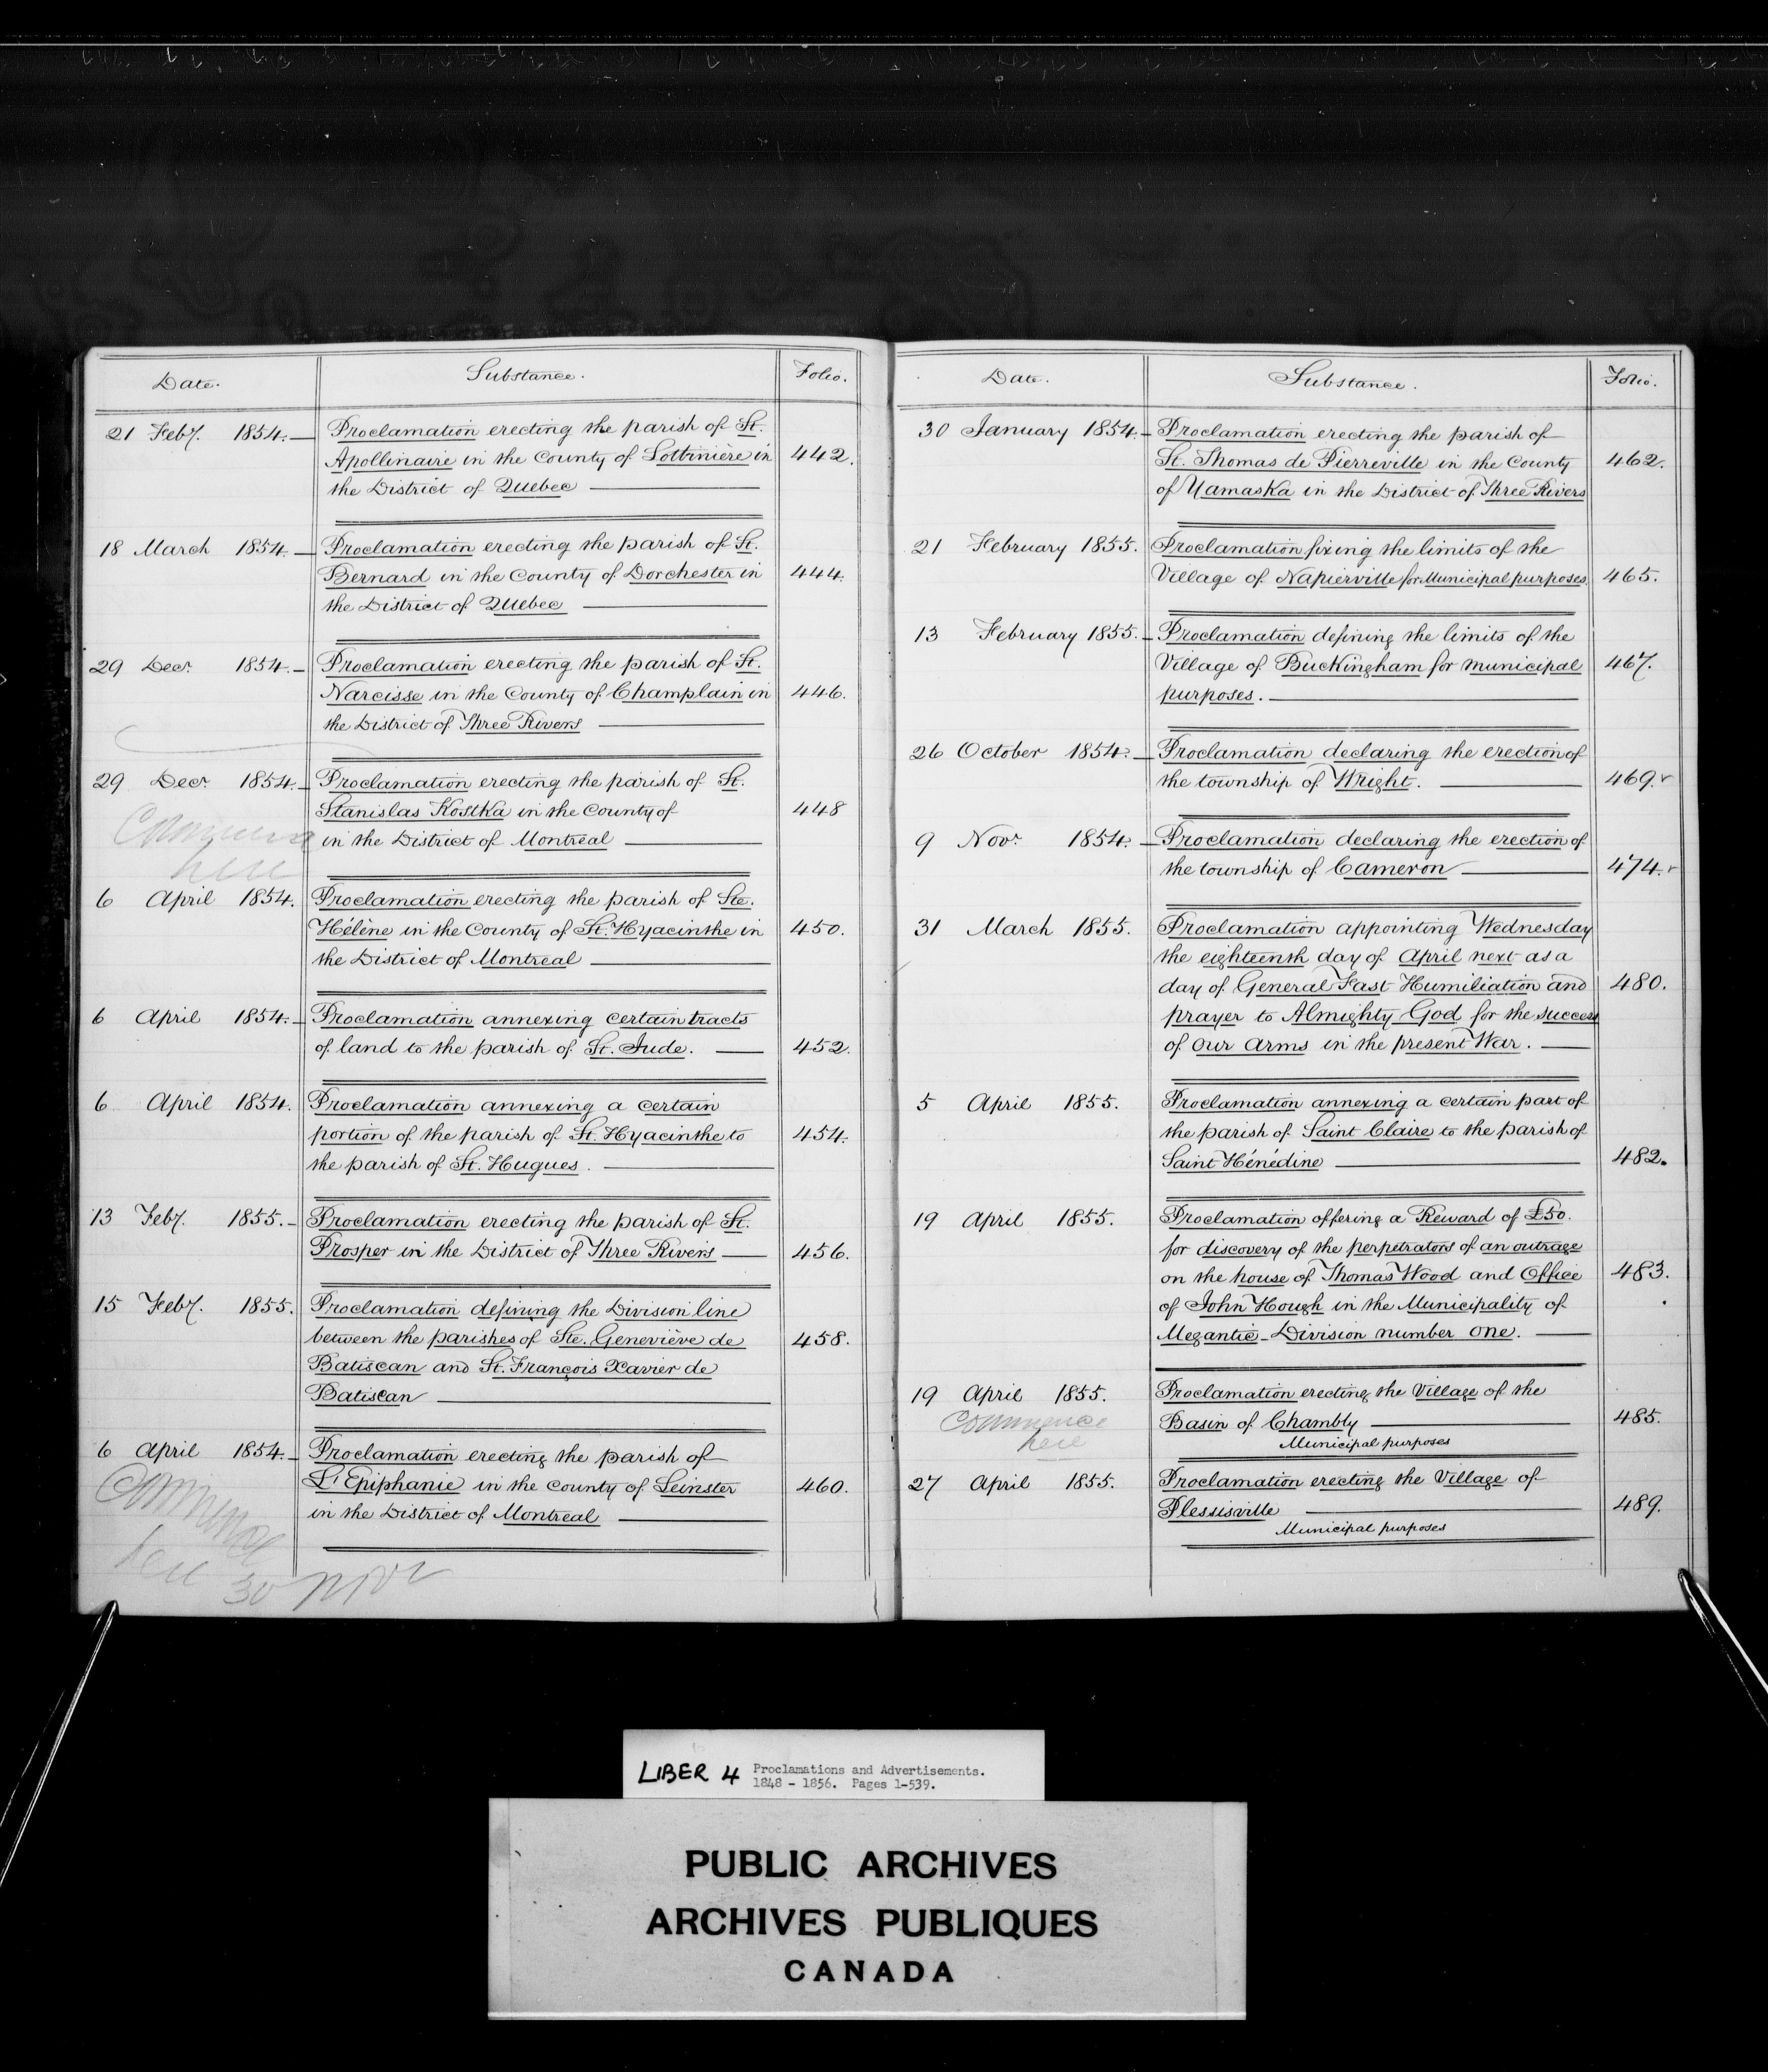 Date. Substance. Folio.
21 Feby. 1854. Proclamation erecting the parish of St.
Apollinaire in the County of Lotbinière in 442.
the District of Quebec
18 March 1854. Proclamation erecting the parish of St.
Bernard in the County of Dorchester in 444.
the District of Quebec
29 Decr. 1854. Proclamation erecting the parish of St.
Narcisse in the County of Champlain in 446.
the District of Three Rivers
29 Decr. 1854. Proclamation erecting the parish of St.
Stanislas Kostka in the County of 448
Commence
in the District of Montreal
here
6 April 1854. Proclamation erecting the parish of Ste.
Hélène in the County of St. Hyacinthe in 450.
the District of Montreal
6 April 1854. Proclamation annexing certain tracts
of land to the parish of St. Jude. 452.
6 April 1854. Proclamation annexing a certain
portion of the parish of St. Hyacinthe to 454.
the parish of St. Hugues.
13 Feby. 1855. Proclamation erecting the parish of St.
Prosper in the District of Three Rivers 456.
15 Feby. 1855. Proclamation defining the Division line
between the parishes of Ste. Geneviève de 458.
Batiscan and St. François Xavier de
Batiscan
6 April 1854. Proclamation erecting the parish of
L'Epiphanie in the County of Leinster 460.
in the District of Montreal
Commence
here
30 Nov
Date. Substance. Folio.
30 January 1854. Proclamation erecting the parish of
St. Thomas de Pierreville in the County 462.
of Yamaska in the District of Three Rivers
21 February 1855. Proclamation fixing the limits of the
Village of Napierville for Municipal purposes 465.
13 February 1855. Proclamation defining the limits of the
Village of Buckingham for municipal 467.
purposes.
26 October 1854. Proclamation declaring the erection of
the township of Wright. 469.
9 Novr. 1854. Proclamation declaring the erection of
the township of Cameron 474.
31 March 1855. Proclamation appointing Wednesday
the eighteenth day of April next as a
day of General Fast Humiliation and 480.
prayer to Almighty God for the success
of our arms in the present War.
5 April 1855. Proclamation annexing a certain part of
the parish of Saint Claire to the parish of
Saint Hénédine 482.
19 April 1855. Proclamation offering a Reward of £50.
for discovery of the perpetrators of an outrage
on the house of Thomas Wood and Office 483.
of John Hough in the Municipality of
Megantic - Division number one.
19 April 1855. Proclamation erecting the Village of the
Commence
Basin of Chambly 485.
here
Municipal purposes
27 April 1855. Proclamation erecting the Village of
Plessisville 489.
Municipal purposes
LIBER 4 Proclamations and Advertisements.
1848 - 1856. Pages 1-539.
PUBLIC ARCHIVES
ARCHIVES PUBLIQUES
CANADA